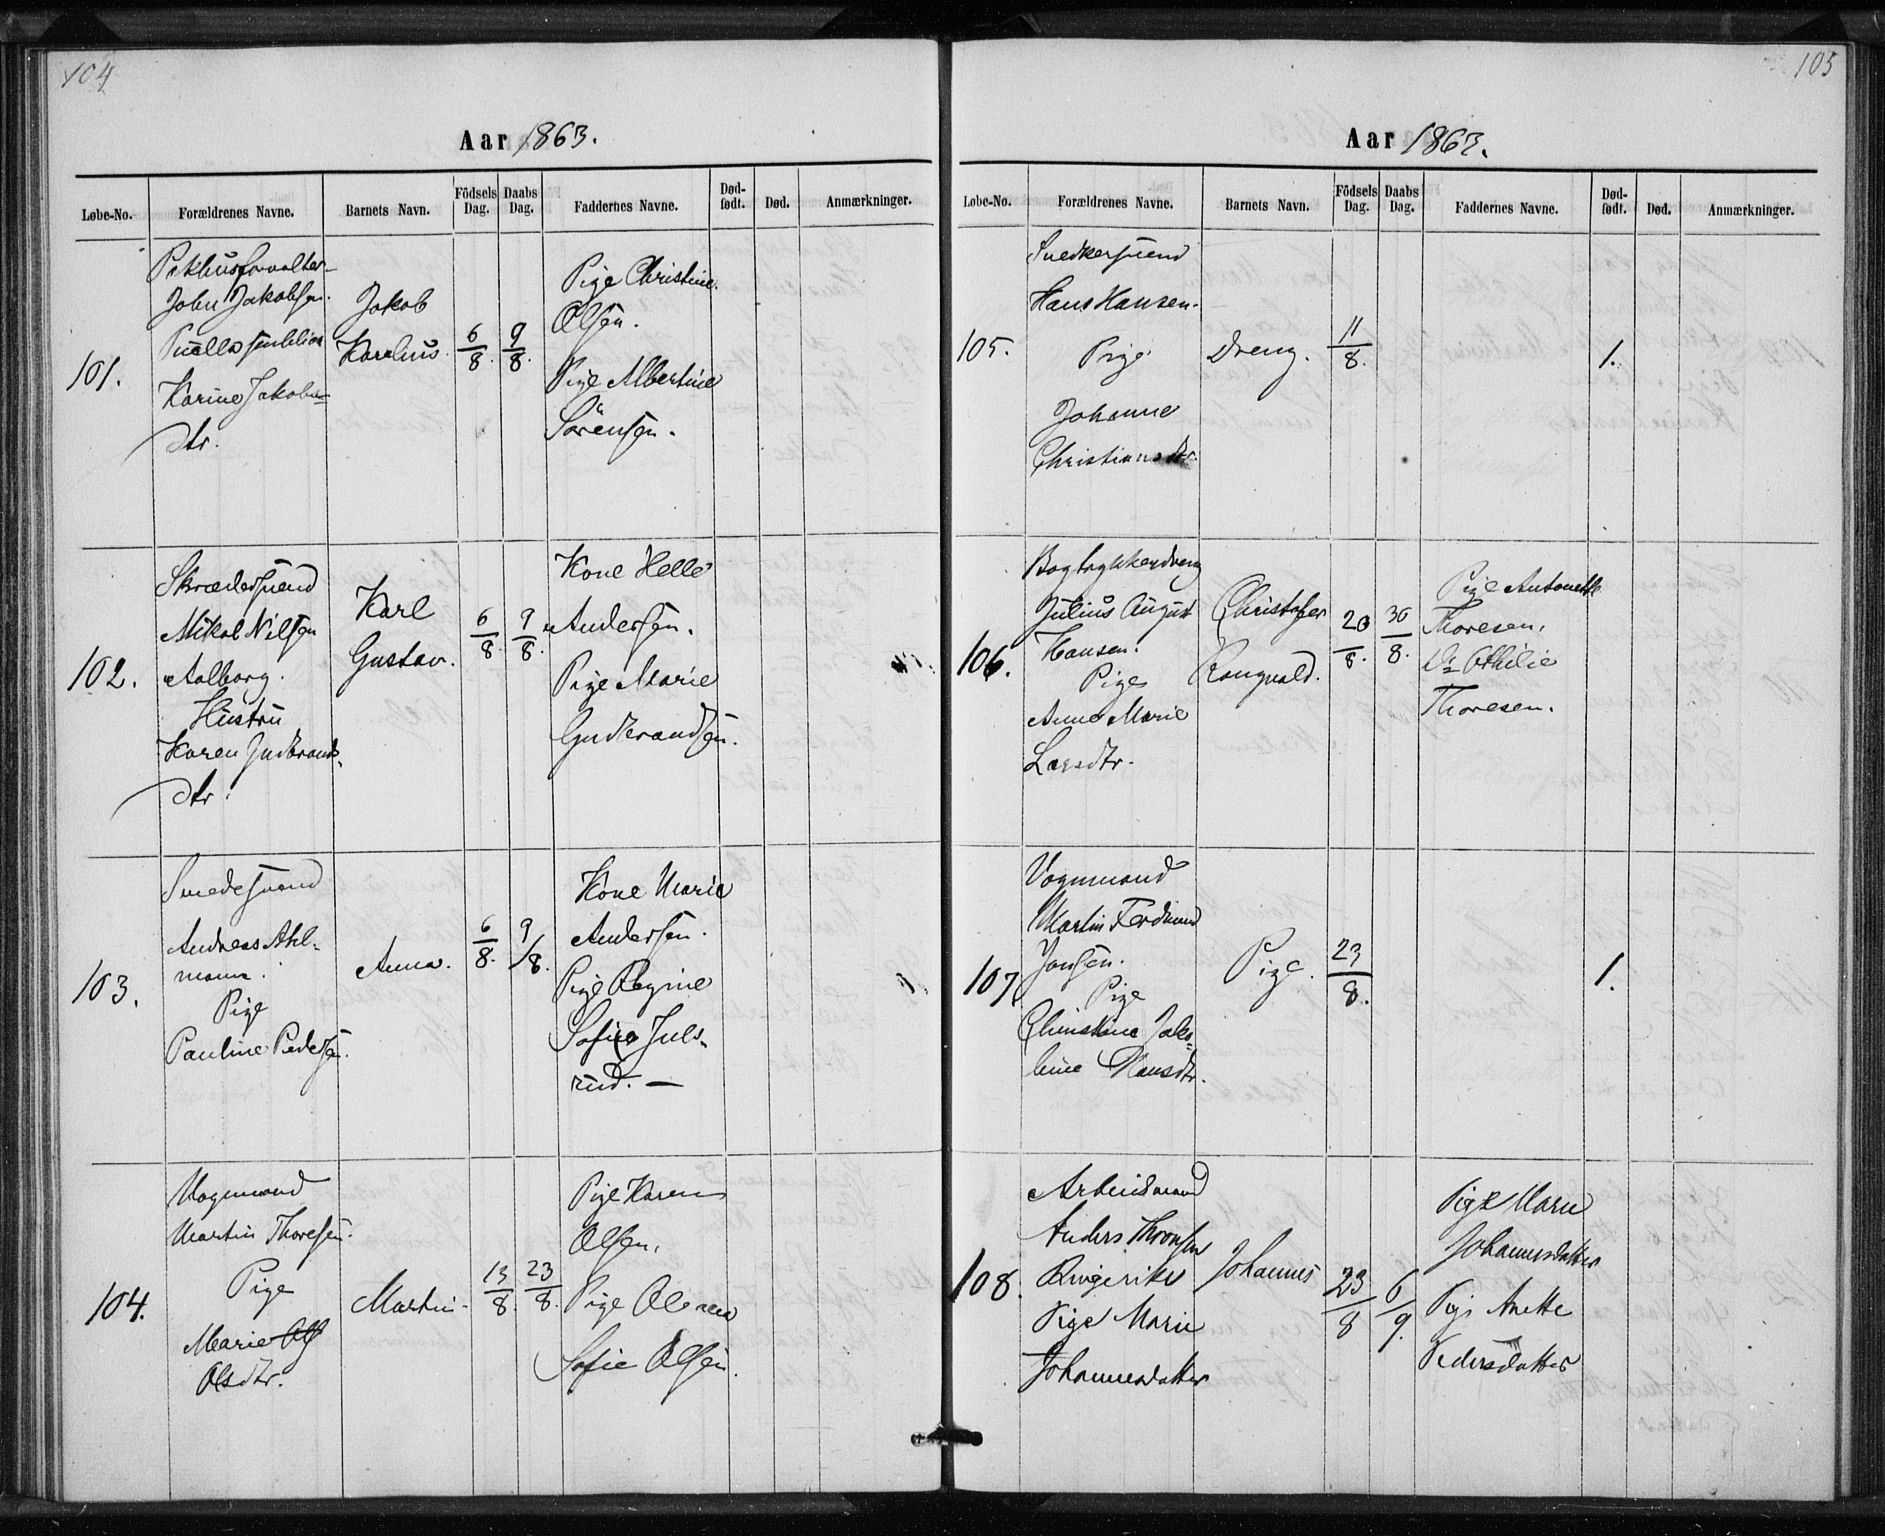 104
Aar 1863.
Løbe-No. Forældrenes Navne. Barnets Navn. Födsels Dag. Daabs Dag. Faddernes Navne. Død-født. Død. Anmærkninger.
101.
Pakhusforvalter
John Jakobsen.
Karine Jakobs-
dtr.
Jakob
Karelius.
6/8. 9/8.
Pige Christine
Olsen.
Pige Albertine
Sörensen.
102.
Skrædersvend
Mikal Nilsen
Aalborg.
Hustru
Karen Gudbrands-
dtr.
Karl
Gustav.
6/8. 9/8.
Kone Helle
Andersen.
Pige Marie
Gudbrandsen.
103.
Smedesvend
Andreas Ahl-
mann.
Pige
Pauline Pedersen.
Anna.
6/8. 9/8.
Kone Marie
Andersen.
Pige Regine
Sofie Juls-
rud. —
104.
Vognmand
Martin Thoresen.
Pige
Marie Ols
Olsdtr.
Martin.
13/8. 23/8.
Pige Karen
Olsen.
Pige Oleana
Sofie Olsen.
105
Aar 1863.
Løbe-No. Forældrenes Navne. Barnets Navn. Födsels Dag. Daabs Dag. Faddernes Navne. Død-født. Død. Anmærkninger.
105.
Snedkersvend
Hans Hansen.
Pige
Johanne
Christiansdtr.
Dreng.
11/8.
1.
106.
Bogtrykkerdreng
Julius August
Hansen.
Pige
Anne Marie
Larsdtr.
Christofer
Rangvald.
20/8. 30/8.
Pige Antonette
Thoresen.
Do Othilie
Thoresen.
107.
Vognmand
Martin Ferdinand
Jansen.
Pige
Christine Jako-
bine Hansdtr.
Pige.
23/8.
1.
108.
Arbeidsmand
Anders Thronsen
Ringerike
Pige Marie
Johannesdatter
Johannes
23/8 6/9.
Pige Marie
Johannesdatter
Pige Anette
Pedersdatter